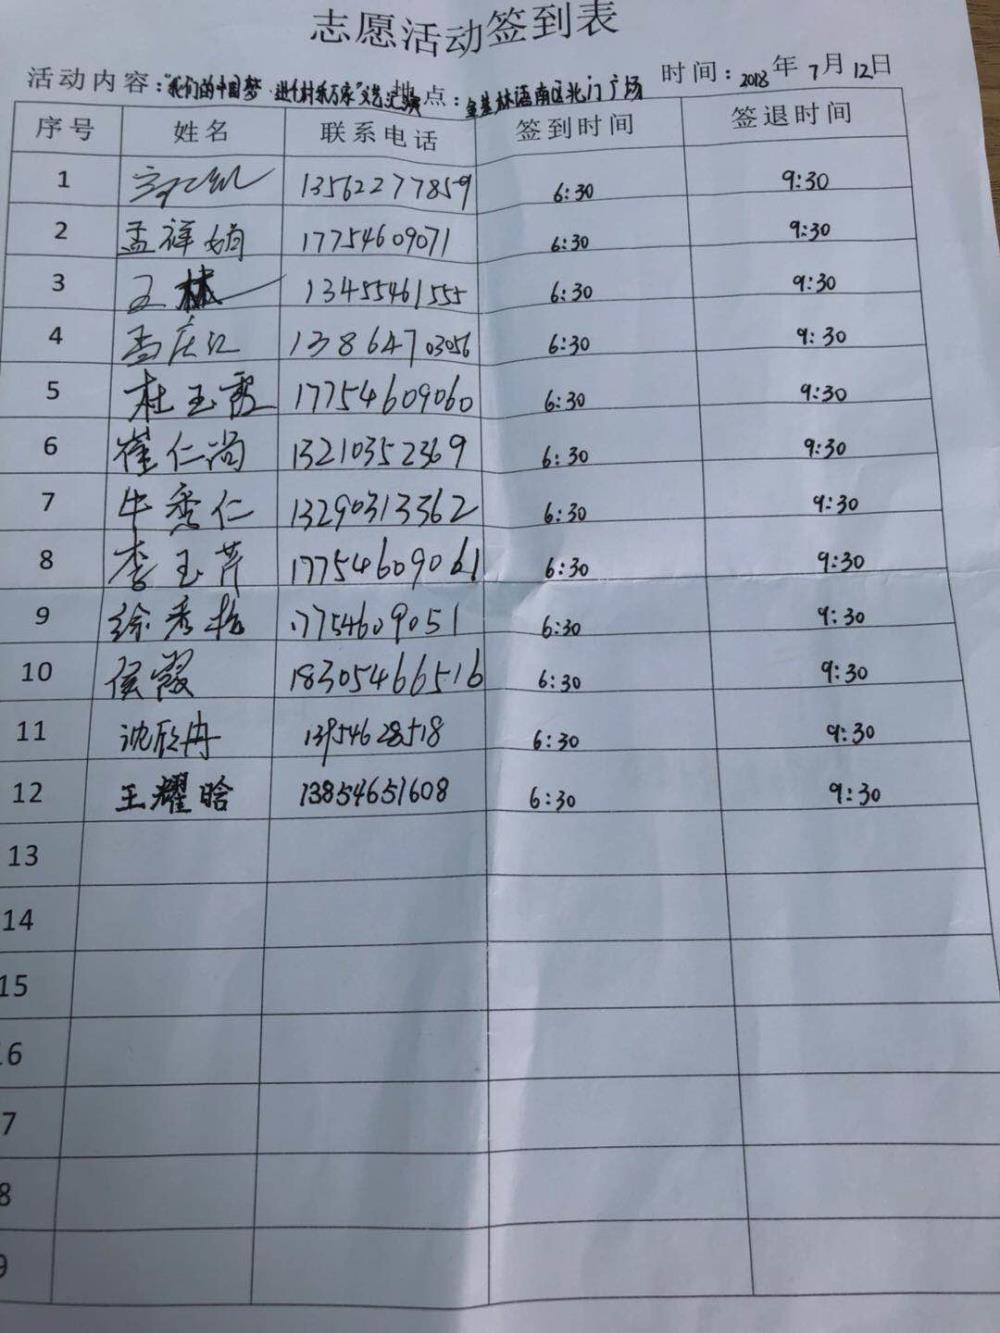 志愿活动签到表
活动内容："我们的中国梦·进千村乐万家"文艺汇演 地点：金基林语南区北门广场 时间：2018年7月12日
序号 姓名 联系电话 签到时间 签退时间
1 13562277859 6:30 9:30
2 孟祥娟 17754609071 6:30 9:30
3 王林 13455461555 6:30 9:30
4 孟庆红 13864703056 6:30 9:30
5 杜玉霞 17754609060 6:30 9:30
6 崔仁尚 13210352369 6:30 9:30
7 牛秀仁 13290313362 6:30 9:30
8 李玉芹 17754609061 6:30 9:30
9 徐秀 17754609051 6:30 9:30
10 侯霞 18305466516 6:30 9:30
11 沈欣冉 13954628518 6:30 9:30
12 王耀晗 13854651608 6:30 9:30
13
14
15
16
7
8
9